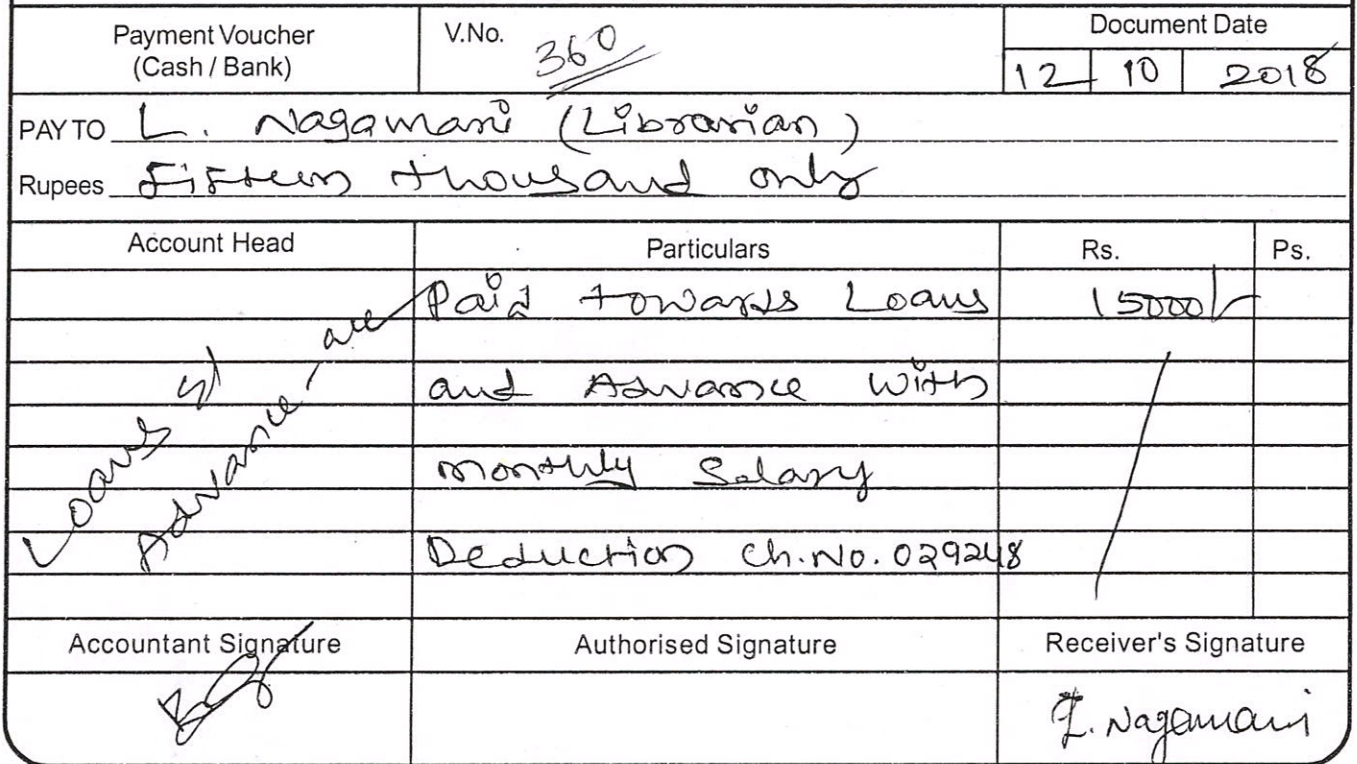 Payment Voucher
(Cash / Bank)
V.No. 360
Document Date
12 10 2018
PAY TO L. Nagamani (Librarian)
Rupees Fifteen thousand only
Account Head Particulars Rs. Ps.
Paid towards Loans 15000/-
and Advance with
monthly Salary
Deduction Ch.No. 029248
Loans
Advance
Accountant Signature Authorised Signature Receiver's Signature
L. Nagamani